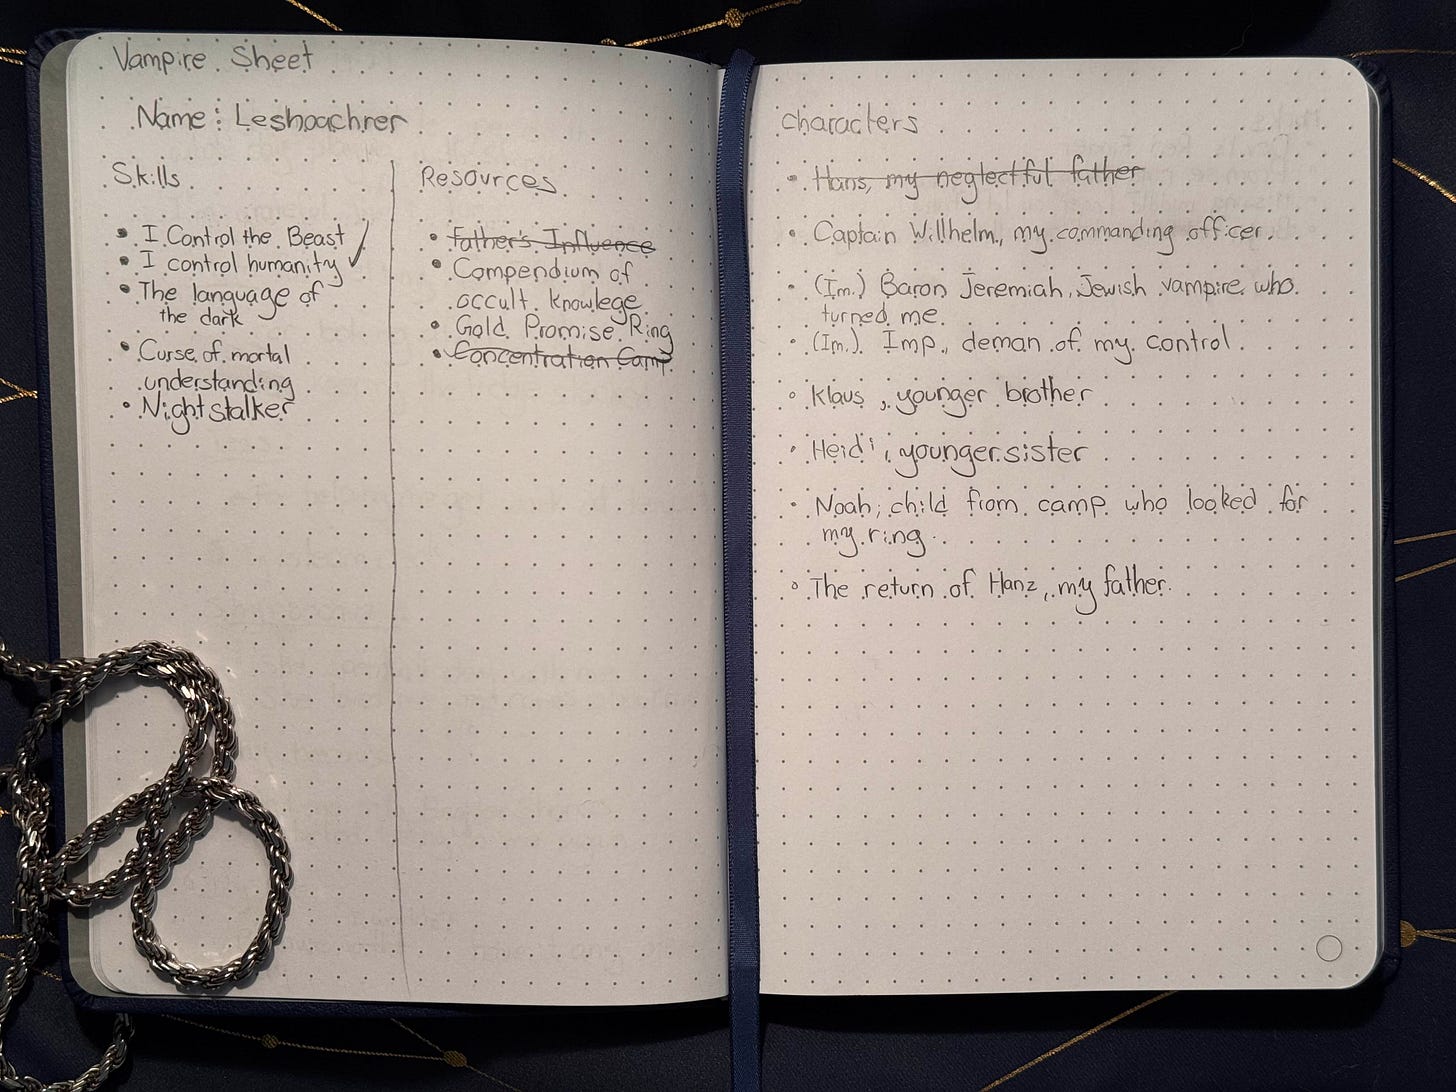 Vampire Sheet
Name: Leshoachrer
Skills
• I Control the Beast
• I control humanity ✓
• The language of
the dark
• Curse of mortal
understanding
• Nightstalker
Resources
• Father's Influence
• Compendium of
occult knowlege
• Gold Promise Ring
• Concentration Camp
Characters
• Hans, my neglectful father
• Captain Willhelm, my commanding officer.
• (Im.) Baron Jeremiah, Jewish vampire who
turned me.
• (Im.) Imp, deman of my control
• Klaus, younger brother
• Heidi, younger sister
• Noah, child from camp who looked for
my ring.
• The return of Hanz, my father.